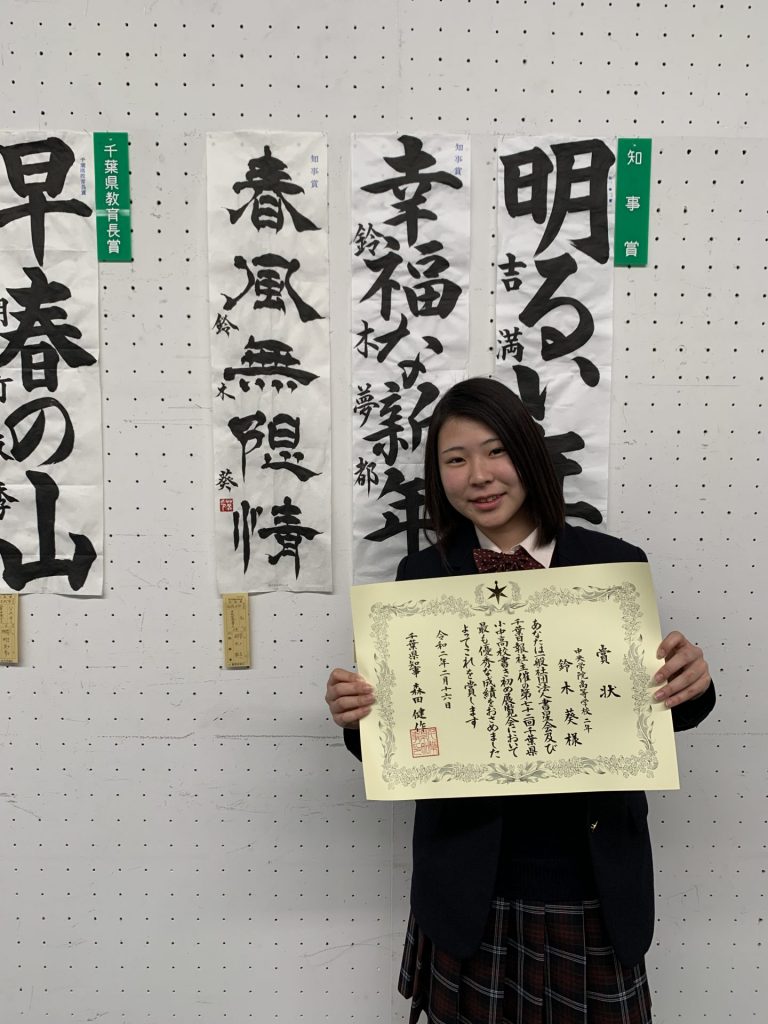 知事賞
明るい年
吉満
知事賞
幸福な新年
鈴木夢都
知事賞
春風無限情
鈴木葵
千葉県教育長賞
千葉県教育長賞
早春の山
賞状
中央学院高等学校 二年
鈴木 葵 様
あなたは一般社団法人書星会及び
千葉日報社主催の第七十二回千葉県
小中高校書き初め展覧会において
最も優秀な成績をおさめました
よってこれを賞します
令和二年一月十六日
千葉県知事 森田健作